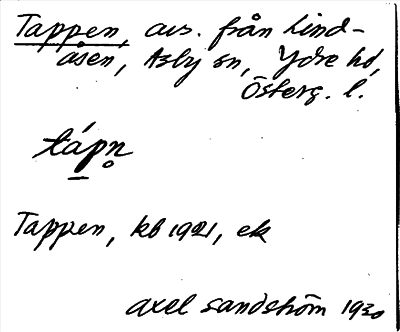 Tappen, avs. från Lind-
åsen, Asby sn, Ydre hd,
Österg. l.
tápn̥
Tappen, kb 1921, ek
Axel Sandström 1930